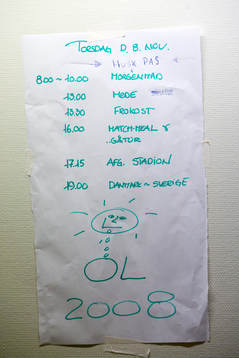 TORSDAG D. 8. NOV.
HUSK PAS
8.00 ~ 10.00 MORGENMAD
13.00 MØDE
13.30 FROKOST
16.00 MATCH-MEAL &
GÅTUR
17.15 AFG. STADION
19.00 DANMARK ~ SVERIGE
ÓL
2008